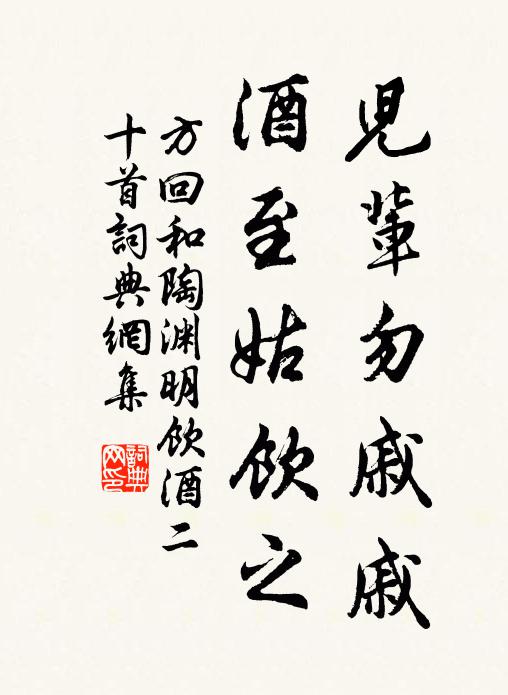 兒輩勿戚戚
酒至姑飲之
方回和陶渊明飲酒二
十首詞典網集
詞典
网印